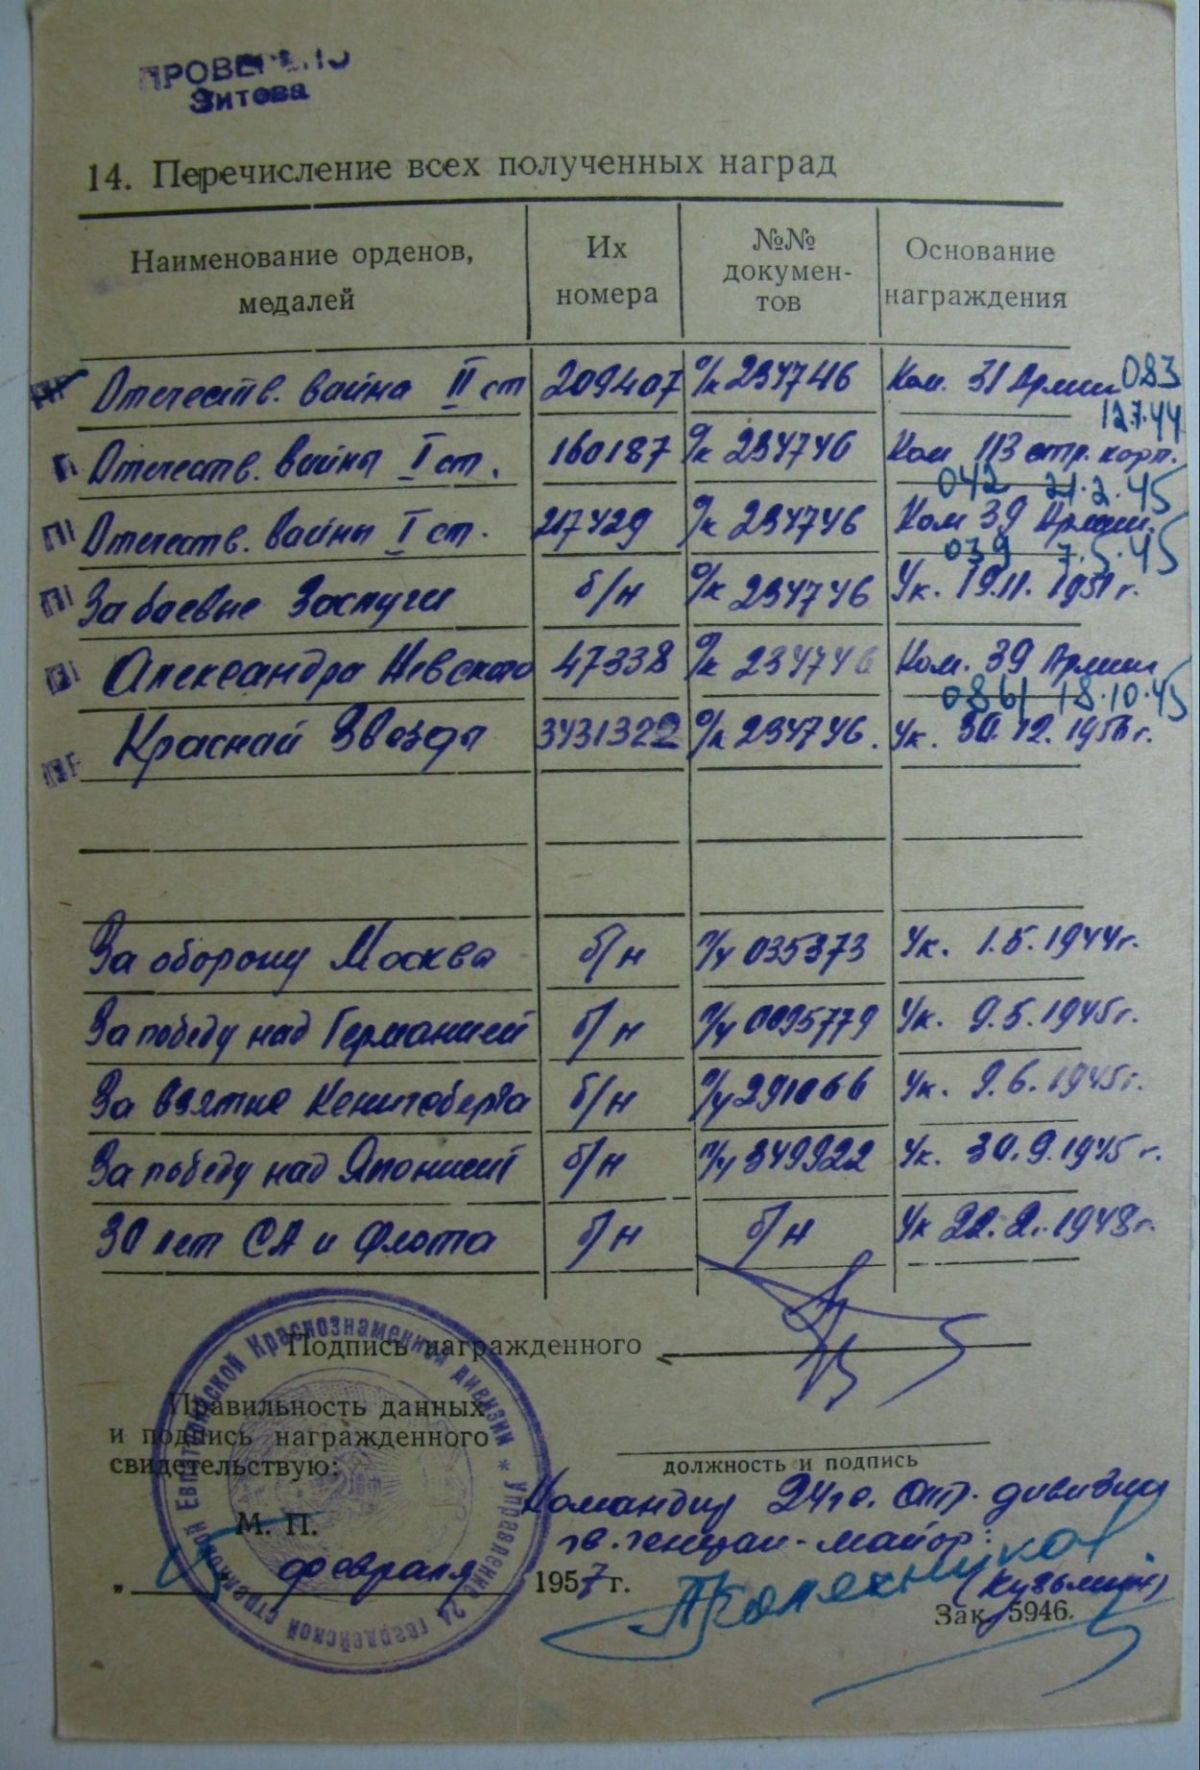 ПРОВЕРЕНО
Зитова
14. Перечисление всех полученных наград
Наименование орденов, медалей | Их номера | №№ докумен-тов | Основание награждения
Отечеств. война II ст 209407 о/к 234746 Ком. 31 Армии 083
12.7.44
Отечеств. войны I ст. 160187 о/к 234746 Ком 113 стр. корп.
042 21.2.45
Отечеств. войны I ст. 217429 о/к 234746 Ком 39 Армии.
039 7.5.45
За боевые Заслуги б/н о/к 234746 Ук. 19.11. 1951 г.
Александра Невского 47338 о/к 234746 Ком. 39 Армии
0861 18.10.45
Красной Звезды 3431322 о/к 234746. Ук. 30.12. 1956 г.
За оборону Москва б/н п/у 035373 Ук. 1.5.1944 г.
За победу над Германией б/н п/у 0095779 Ук. 9.5.1945 г.
За взятие Кенигсберга б/н п/у 291066 Ук. 9.6.1945 г.
За победу над Японией б/н п/у 349922 Ук. 30.9.1945 г.
30 лет СА и Флота б/н б/н Ук 22.2.1948 г.
Подпись награжденного
Правильность данных
и подпись награжденного
свидетельствую:
должность и подпись
Командир 24 гв. стр. дивизии
гв. генерал-майор:
М. П.
февраля 1957 г.
(Кузьмин)
Зак. 5946.
Управление 24 гвардейской стрелковой Евпаторийской Краснознаменной дивизии *